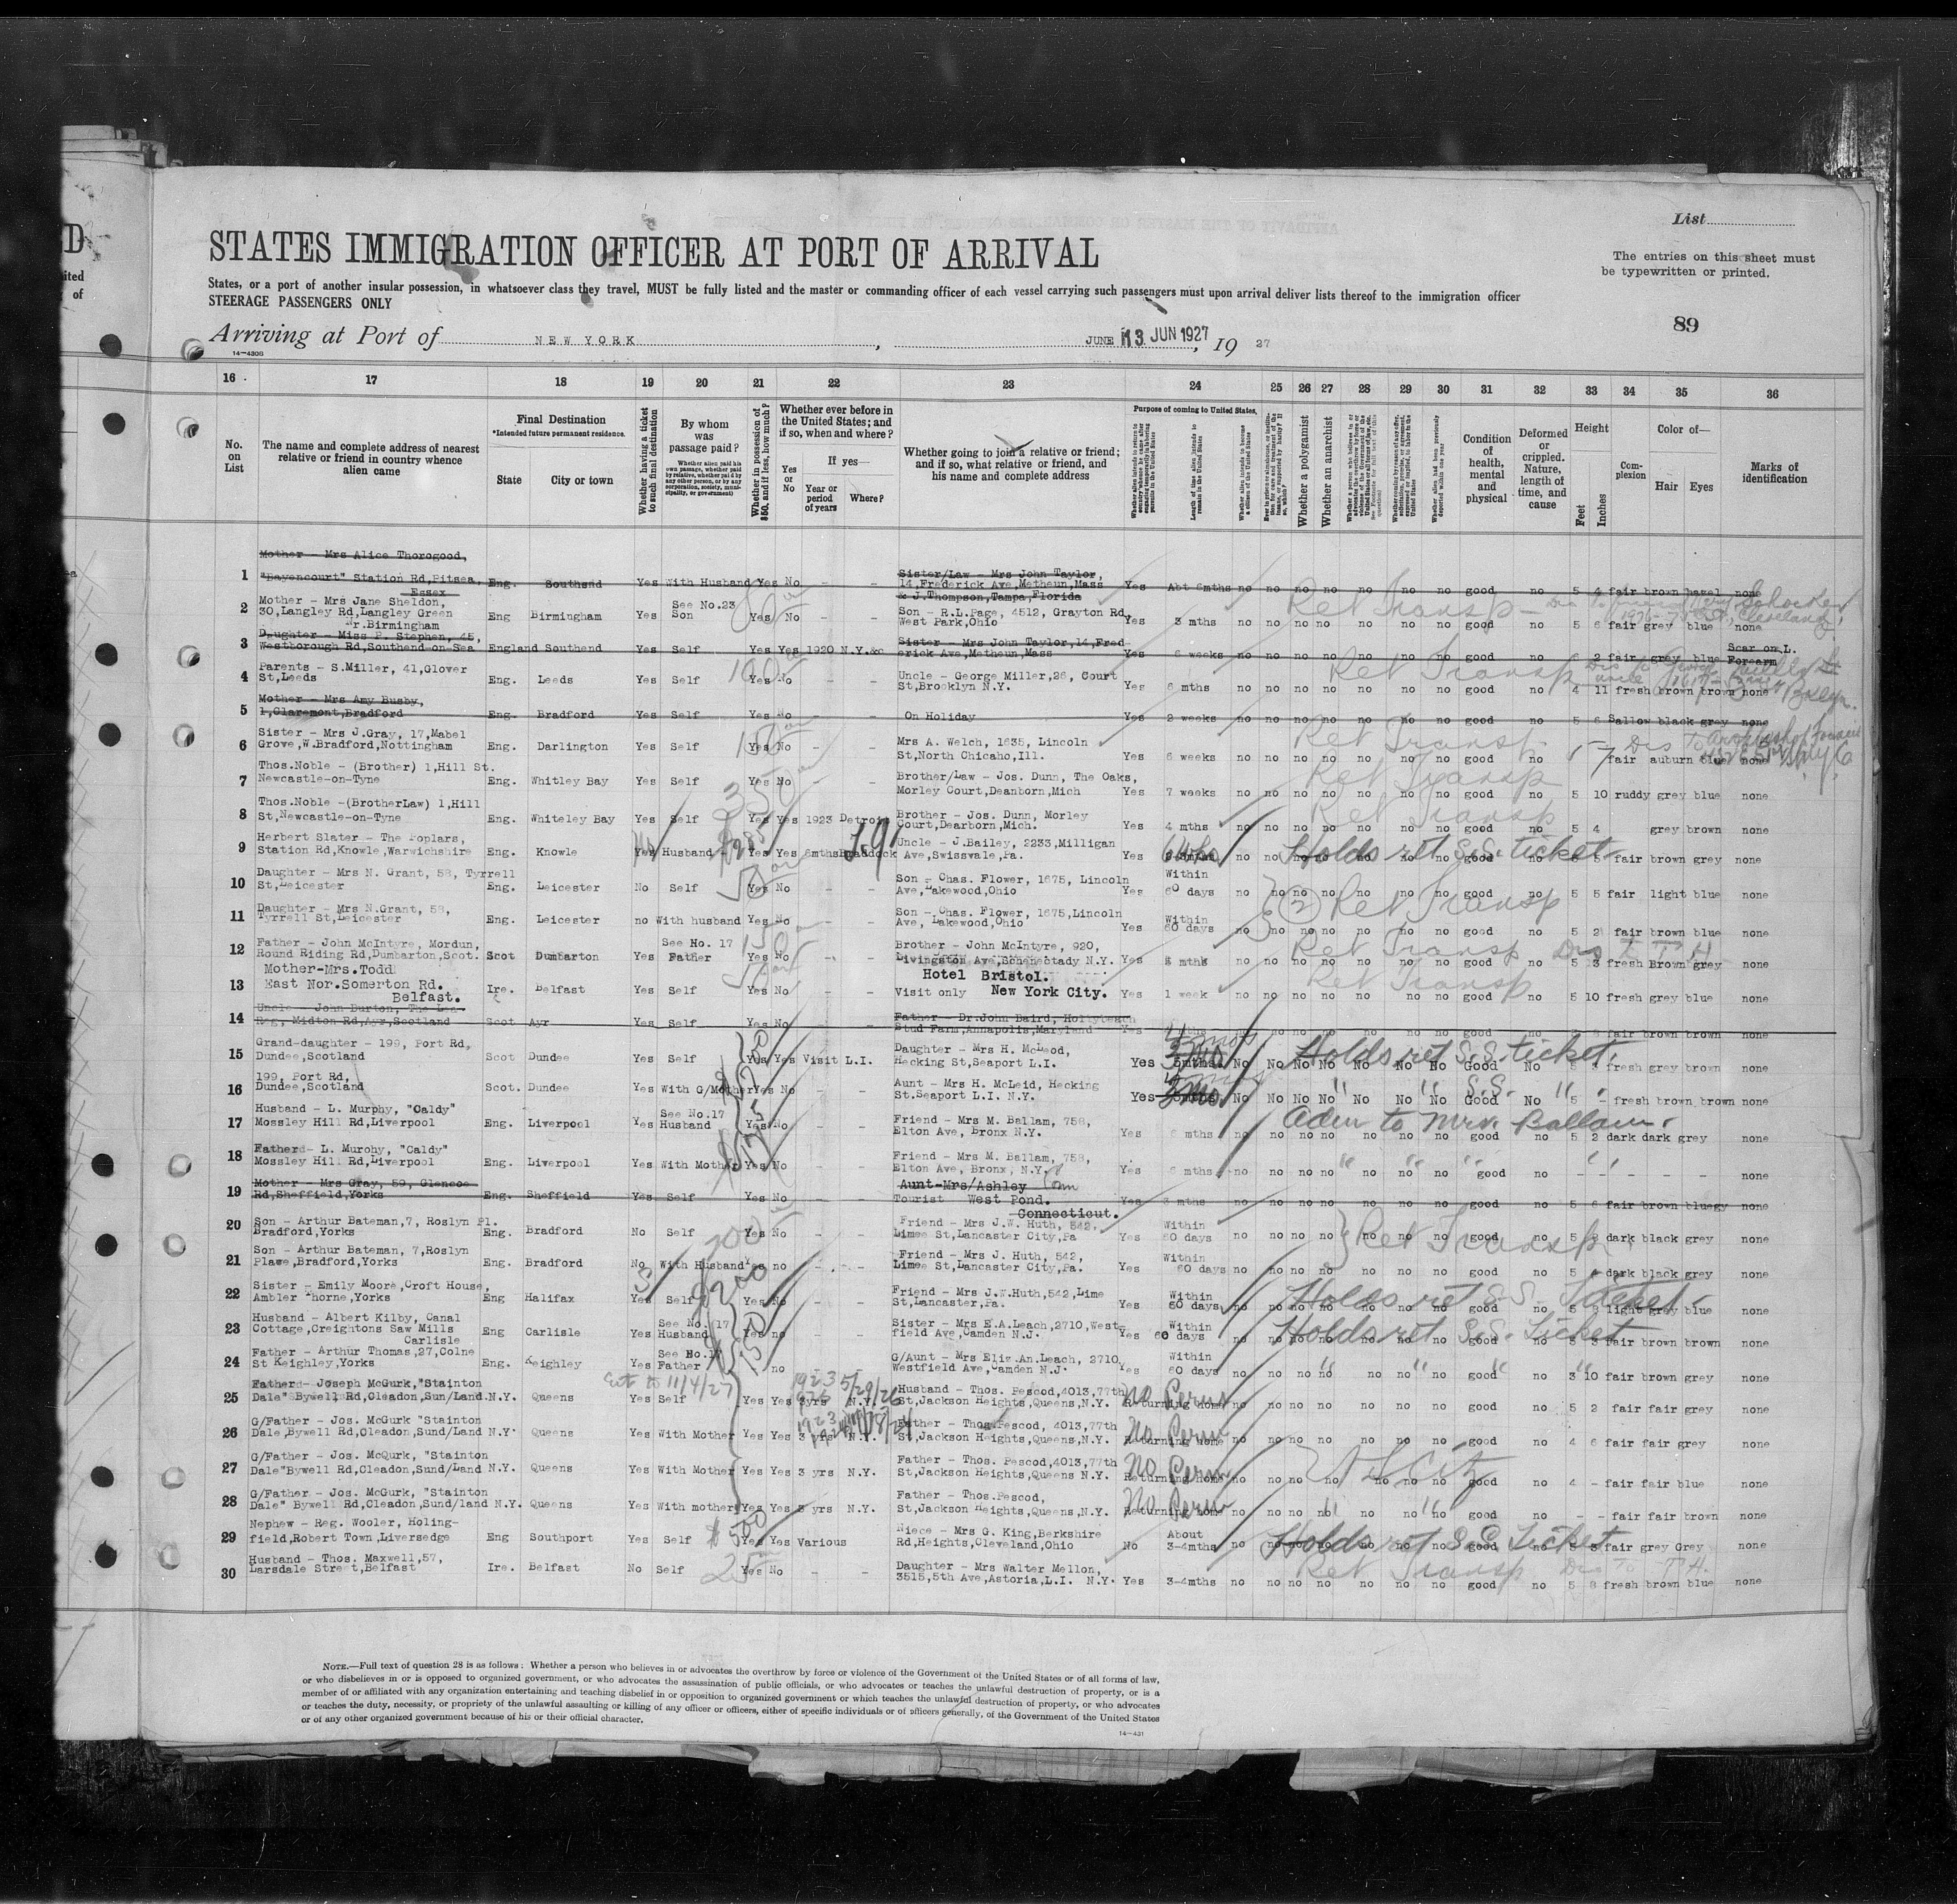 D
ited
of
List
STATES IMMIGRATION OFFICER AT PORT OF ARRIVAL
The entries on this sheet must
be typewritten or printed.
States, or a port of another insular possession, in whatsoever class they travel, MUST be fully listed and the master or commanding officer of each vessel carrying such passengers must upon arrival deliver lists thereof to the immigration officer
STEERAGE PASSENGERS ONLY
89
Arriving at Port of NEW YORK, JUNE 13 JUN 1927, 19 27
14-4306
16 17 18 19 20 21 22 23 24 25 26 27 28 29 30 31 32 33 34 35 36
No. on List
The name and complete address of nearest relative or friend in country whence alien came
Final Destination
*Intended future permanent residence.
State
City or town
Whether having a ticket to such final destination
By whom was passage paid?
Whether alien paid his own passage, whether paid by relative, whether paid by any other person, or by any corporation, society, municipality, or government)
Whether in possession of $50, and if less, how much?
Whether ever before in the United States; and if so, when and where?
Yes or No
If yes—
Year or period of years
Where?
Whether going to join a relative or friend; and if so, what relative or friend, and his name and complete address
Purpose of coming to United States.
Length of time alien intends to remain in the United States
Whether alien intends to become a citizen of the United States
Whether a polygamist
Whether an anarchist
Condition of health, mental and physical
Deformed or crippled. Nature, length of time, and cause
Height
Feet
Inches
Complexion
Color of—
Hair
Eyes
Marks of identification
Mother - Mrs Alice Thorogood,
1 "Bayencourt" Station Rd,Pitsea, Essex Eng. Southend Yes With Husband Yes No - - Sister/Law - Mrs John Taylor, 14,Frederick Ave,Metheun,Mass & J.Thompson,Tampa,Florida Yes Abt 6mths no no no no no no no good no 5 4 fair brown hazel none
2 Mother - Mrs Jane Sheldon, 30,Langley Rd,Langley Green Nr.Birmingham Eng Birmingham Yes See No.23 Son Yes No - - Son - R.L.Page, 4512, Grayton Rd, West Park,Ohio Yes 3 mths no no no no no no no good no 5 6 fair grey blue none
Ret Transp
3 Daughter - Miss P. Stephen, 45, Westborough Rd,Southend-on-Sea England Southend Yes Self Yes Yes 1920 N.Y.&c Sister - Mrs John Taylor,14,Frederick Ave,Metheun,Mass Yes 6 weeks no no no no no no no good no 2 fair grey blue Scar on L. Forearm
4 Parents - S.Miller, 41,Glover St,Leeds Eng. Leeds Yes Self 100 Yes No - - Uncle - George Miller,26, Court St,Brooklyn N.Y. Yes 6 mths no no no no no no no good no 4 11 fresh brown brown none
Ret Transp
5 Mother - Mrs Amy Busby, 1,Claremont,Bradford Eng. Bradford Yes Self Yes No - On Holiday Yes 2 weeks no no no no no no no good no 5 6 Sallow black grey none
6 Sister - Mrs J.Gray, 17,Mabel Grove,W.Bradford,Nottingham Eng. Darlington Yes Self 150 Yes No - - Mrs A. Welch, 1635, Lincoln St,North Chicaho,Ill. Yes 6 weeks no no no no no no no good no 5 7 fair auburn blue none
Ret Transp
7 Thos.Noble - (Brother) 1,Hill St. Newcastle-on-Tyne Eng. Whitley Bay Yes Self Yes No - - Brother/Law - Jos. Dunn, The Oaks, Morley Court,Deanborn,Mich Yes 7 weeks no no no no no no no good no 5 10 ruddy grey blue none
Ret Transp
8 Thos.Noble -(BrotherLaw) 1,Hill St,Newcastle-on-Tyne Eng. Whiteley Bay Yes Self 350 Yes Yes 1923 Detroit Brother - Jos. Dunn, Morley Court,Dearborn,Mich. Yes 4 mths no no no no no no no good no 5 4 grey brown none
Ret Transp
9 Herbert Slater - The Poplars, Station Rd,Knowle,Warwichshire Eng. Knowle Yes Husband Yes Yes 6mths Braddock Uncle - J.Bailey, 2233,Milligan Ave,Swissvale,Pa. Yes no no no no no no no good no 5 5 fair brown grey none
Holds ret S.S. ticket
10 Daughter - Mrs N. Grant, 58, Tyrrell St,Leicester Eng. Leicester No Self 50 Yes No - - Son - Chas. Flower, 1675, Lincoln Ave,Lakewood,Ohio Yes Within 60 days no no no no no no no good no 5 5 fair light blue none
2 Ret Transp
11 Daughter - Mrs N.Grant, 58, Tyrrell St,Leicester Eng. Leicester no With husband Yes No - - Son - Chas. Flower, 1675,Lincoln Ave, Lakewood,Ohio Yes Within 60 days no no no no no no no good no 5 2 fair brown blue none
12 Father - John McIntyre, Mordun, Round Riding Rd,Dumbarton,Scot. Scot Dumbarton Yes See Ho. 17 Father 150 Yes No - - Brother - John McIntyre, 920, Livingston Ave,Schenectady N.Y. Yes mths no no no no no no no good no 5 3 fresh Brown grey none
Ret Transp Dis T T H
13 Mother-Mrs.Todd East Nor.Somerton Rd. Belfast. Ire. Belfast Yes Self 50 Yes No - - Hotel Bristol. Visit only New York City. Yes 1 week no no no no no no no good no 5 10 fresh grey blue none
Ret Transp
14 Uncle - John Burton, The Lea- Reg, Midton Rd,Ayr,Scotland Scot Ayr Yes Self Yes No - - Father - Dr.John Baird, Hollybeach Stud Farm,Annapolis,Maryland Yes no no no no no no no good no fair brown brown none
15 Grand-daughter - 199, Port Rd, Dundee,Scotland Scot Dundee Yes Self Yes Yes Visit L.I. Daughter - Mrs H. McLeod, Hecking St,Seaport L.I. Yes No No No No No No No Good No 5 fresh grey brown none
Holds ret S.S. ticket.
16 199, Port Rd, Dundee,Scotland Scot. Dundee Yes With G/Mother Yes No - - Aunt - Mrs H. McLeid, Hecking St.Seaport L.I. N.Y. Yes No No No No No No No Good No 5 - fresh brown brown none
" " S.S. " "
17 Husband - L. Murphy, "Caldy" Mossley Hill Rd,Liverpool Eng. Liverpool Yes See No.17 Husband Yes No - - Friend - Mrs M. Ballam, 758, Elton Ave, Bronx N.Y. Yes 6 mths no no no no no no no good no 5 2 dark dark grey none
Adm to Mrs. Ballam.
18 Father - L. Murohy, "Caldy" Mossley Hill Rd,Liverpool Eng. Liverpool Yes With Mother Yes No - - Friend - Mrs M. Ballam, 758, Elton Ave, Bronx, N.Y. Yes 6 mths no no no no no no no good no - - - - - none
19 Mother - Mrs Gray, 59, Glencoe Rd,Sheffield,Yorks Eng. Sheffield Yes Self Yes No - - Aunt-Mrs/Ashley Tourist West Pond. Connecticut. Yes 3 mths no no no no no no no good no 5 6 fair brown bluegy none
20 Son - Arthur Bateman,7, Roslyn Pl. Bradford,Yorks Eng. Bradford No Self 200 Yes No - - Friend - Mrs J.W. Huth, 542, Limee St,Lancaster City,Pa Yes Within 60 days no no no no no no no good no 5 8 dark black grey none
Ret Transp
21 Son - Arthur Bateman, 7,Roslyn Plawe,Bradford,Yorks Eng. Bradford No With Husband Yes no - - Friend - Mrs J. Huth, 542, Lime St,Lancaster City,Pa. Yes Within 60 days no no no no no no no good no 5 4 dark black grey none
22 Sister - Emily Moore,Croft House, Ambler Thorne,Yorks Eng Halifax Yes Self $200 Yes No - - Friend - Mrs J.W.Huth,542,Lime St,Lancaster,Pa. Yes Within 60 days no no no no no no no good no 5 3 light grey blue none
Holds ret S.S. Ticket
23 Husband - Albert Kilby, Canal Cottage,Creightons Saw Mills Carlisle Eng Carlisle Yes See No. 17 Husband Yes no - - Sister - Mrs E.A.Leach,2710,Westfield Ave,Camden N.J. Yes Within 60 days no no no no no no no good no 5 3 fair brown brown none
Holds ret S.S. Ticket
24 Father - Arthur Thomas,27,Colne St Keighley,Yorks Eng. Keighley Yes See No.17 Father no G/Aunt - Mrs Eliz.An.Leach, 2710, Westfield Ave,Camden N.J. Yes Within 60 days no no no no no no no good no 3 10 fair brown grey none
25 Father - Joseph McGurk,"Stainton Dale" Bywell Rd,Cleadon,Sun/Land N.Y. Queens Yes Self Yes Yes 3yrs N.Y. Husband - Thos. Pescod,4013,77th St,Jackson Heights,Queens,N.Y. Returning home no no no no no no no good no 5 2 fair fair grey none
11/4/27 1923 5/29/26
26 G/Father - Jos. McGurk "Stainton Dale,Bywell Rd,Cleadon,Sund/Land N.Y. Queens Yes With Mother Yes Yes 3 yrs N.Y. Father - Thos.Pescod, 4013,77th St,Jackson Heights,Queens,N.Y. Returning home no no no no no no no good no 4 6 fair fair grey none
27 G/Father - Jos. McQurk, "Stainton Dale"Bywell Rd,Cleadon,Sund/Land N.Y. Queens Yes With Mother Yes Yes 3 yrs N.Y. Father - Thos. Pescod,4013,77th St,Jackson Heights,Queens N.Y. Returning Home no no no no no no no good no 4 - fair fair blue none
28 G/Father - Jos. McGurk, "Stainton Dale" Bywell Rd,Cleadon,Sund/land N.Y. Queens Yes With mother Yes Yes 3 yrs N.Y. Father - Thos.Pescod, St,Jackson Heights,Queens,N.Y. Returning home no no no no no no no good no - - fair fair brown none
29 Nephew - Reg. Wooler, Holingfield,Robert Town,Liversedge Eng Southport Yes Self $500 Yes Yes Various Niece - Mrs G. King,Berkshire Rd,Heights,Cleveland,Ohio No About 3-4mths no no no no no no no good no 5 3 fair grey Grey none
Holds ret S.S. Ticket
30 Husband - Thos. Maxwell,57, Larsdale Street,Belfast Ire. Belfast No Self 25 Yes No - - Daughter - Mrs Walter Mellon, 3515,5th Ave,Astoria,L.I. N.Y. Yes 3-4mths no no no no no no no good no 5 8 fresh brown blue none
Ret Transp Dis To T.H.
NOTE.—Full text of question 28 is as follows: Whether a person who believes in or advocates the overthrow by force or violence of the Government of the United States or of all forms of law,
or who disbelieves in or is opposed to organized government, or who advocates the assassination of public officials, or who advocates or teaches the unlawful destruction of property, or is a
member of or affiliated with any organization entertaining and teaching disbelief in or opposition to organized government or which teaches the unlawful destruction of property, or who advocates
or teaches the duty, necessity, or propriety of the unlawful assaulting or killing of any officer or officers, either of specific individuals or of officers generally, of the Government of the United States
or of any other organized government because of his or their official character.
14-431